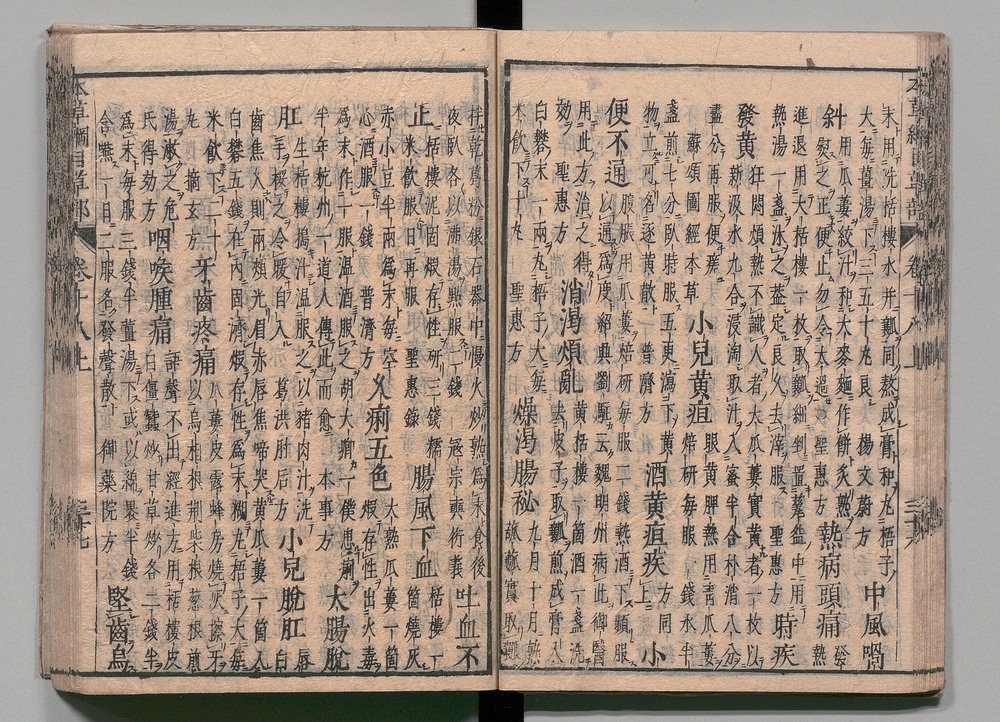 末用洗栝樓水并瓤同熬成膏和丸梧子
大每薑湯下三五十丸良 楊文蔚方 中風喎
斜 用瓜蔞絞汁和大麥麵作餅炙熱
熨之正便止勿令太過 聖惠方 熱病頭痛 發熱
進退用大栝樓一枚取瓤細剉置甆盌中用
熱湯一盞沃之蓋定良久去滓服 聖惠方 時疾
發黃 狂悶煩熱不識人者大瓜蔞實黃者一枚以
新汲水九合浸淘取汁入蜜半合朴消八分
盡分再服便瘥
蘇頌圖經本草 小兒黃疸 眼黃脾熱用青瓜蔞
焙研每服一錢水半
盞煎七分臥時服五更瀉下黃
物立可名逐黃散 普濟方 酒黃疸疾 方同上 小
便不通 腹脹用瓜蔞焙研每服二錢熱酒下頻服
以通爲度紹興劉駐云魏明州病此御醫
用此方治之得
効 聖惠方 消渴煩亂 黃栝樓一箇酒一盞洗
去皮子取瓤煎成膏入
白礬末一兩丸梧子大每
米飲下十丸 聖惠方 燥渴腸秘 九月十月熟
瓜蔞實取瓤
拌乾葛粉銀石器中慢火炒熟爲末食後
夜臥各以沸湯點服二錢 寇宗奭衍義 吐血不
止 栝樓泥固煅存性研三錢糯
米飲服日再服 聖惠錄 腸風下血 栝樓一箇燒灰
赤小豆半兩爲末每空
心酒服一錢 普濟方 久痢五色 大熟瓜蔞一箇
煅存性出火毒
爲末作一服温酒服之胡大卿一僕患痢
半年杭州一道人傳此而愈 本事方 大腸脫
肛 生栝樓搗汁温服之以豬肉汁洗
手挼之令暖自入 葛洪肘后方 小兒脫肛 唇白
齒焦久則兩頰光眉赤唇焦啼哭黃瓜蔞一箇入
白礬五錢在內固濟煅存性爲末糊丸梧子大每
米飲下二十
丸 摘玄方 牙齒疼痛 瓜蔞皮露蜂房燒灰擦牙
以烏桕根荊柴根葱根煎
湯漱之 危
氏得効方 咽喉腫痛 語聲不出經進方用栝樓皮
白僵蠶炒甘草炒各二錢半
爲末每服三錢半薑湯下或以綿裹半錢
含嚥一日二服名發聲散 御藥院方 堅齒烏
本草綱目草部 卷十八上
本草綱目草部 卷十八上